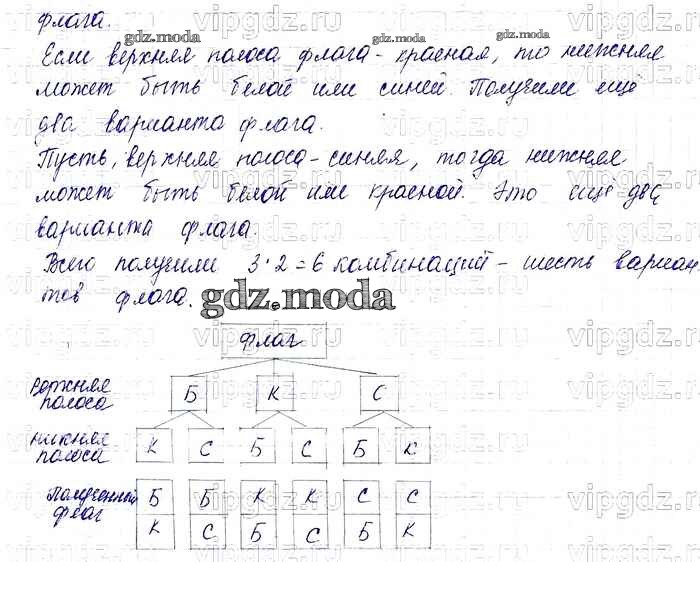 флага.
Если верхняя полоса флага - красная, то нижняя
может быть белой или синей. Получили ещё
два варианта флага.
Пусть, верхняя полоса - синяя, тогда нижняя
может быть белой или красной. Это ещё два
варианта флага.
Всего получили 3·2=6 комбинаций - шесть вариан
тов флага.
gdz.moda
флаг
верхняя полоса Б К С
нижняя полоса К С Б С Б К
Полученный флаг Б Б К К С С
К С Б С Б К